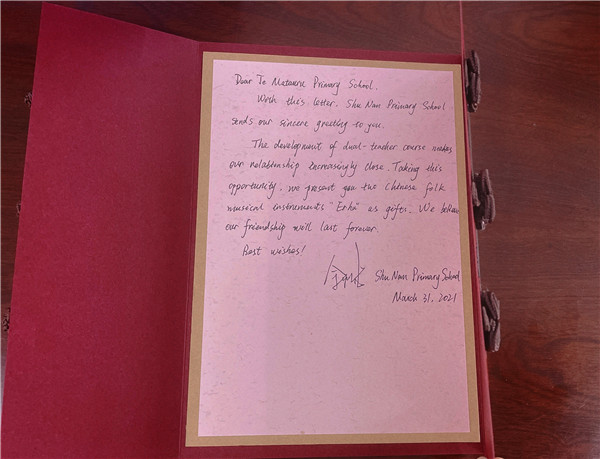 Dear Te Matauru Primary School.
With this letter. Shu Nan Primary School
sends our sincere greeting to you.
The development of dual-teacher course makes
our relationship increasingly close. Taking this
opportunity, we present you the Chinese folk
musical instruments "Erhu" as gifts. We believe
our friendship will last forever.
Best wishes!
Shu Nan Primary School
March 31, 2021